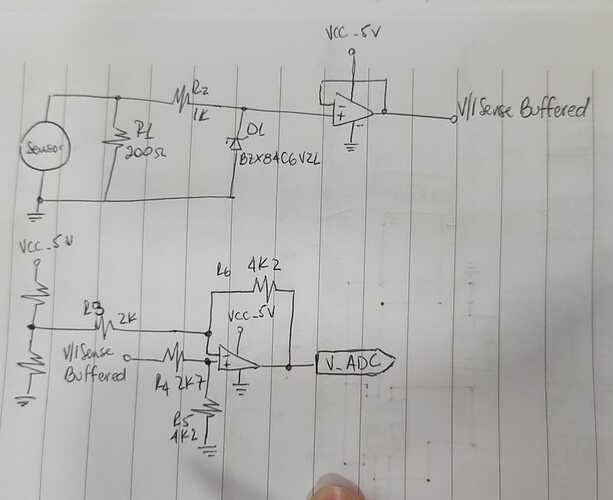 VCC_5V
R2
1K
V/ISense Buffered
R1
200Ω
Sensor
D1
BZX84C6V2L
VCC_5V
R6 4K2
R3 2K
VCC_5V
V/ISense
Buffered
R4 2K7
V_ADC
R5
4K2